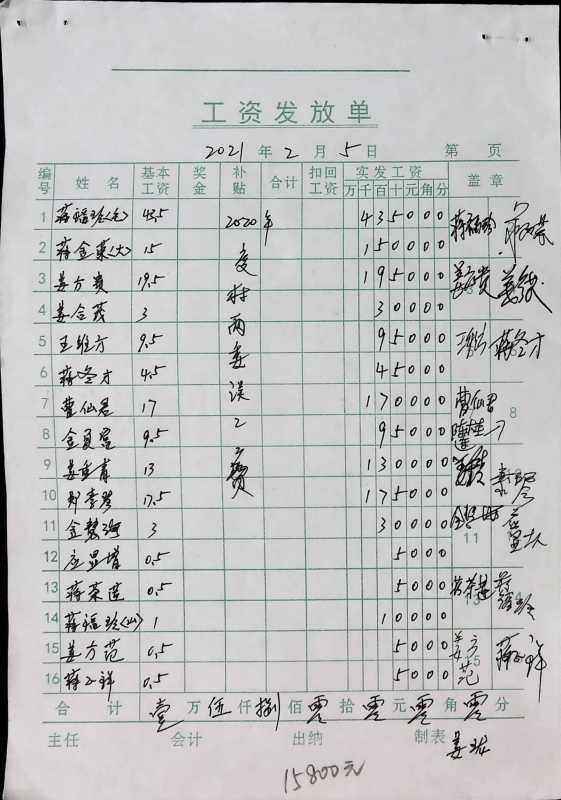 工资发放单
2021 年 2 月 5 日 第 页
编号 姓名 基本工资 奖金 补贴 合计 扣回工资 实发工资 万 千 百 十 元 角 分 盖章
1 蒋福珍(老) 43.5 2020年 4 3 5 0 0 0 蒋福珍
2 蒋金荣(大) 15 1 5 0 0 0 0
3 姜方贵 19.5 村 1 9 5 0 0 0 姜方贵
4 姜金茂 3 两 3 0 0 0 0
5 王维方 9.5 委 9 5 0 0 0 蒋冬才
6 蒋冬才 4.5 误 4 5 0 0 0
7 曹仙君 17 工 1 7 0 0 0 0 曹仙君
8 金夏 9.5 9 5 0 0 0 8
9 姜 13 费 1 3 0 0 0 0
10 17.5 1 7 5 0 0 0
11 金 3 3 0 0 0 0 11
12 应显增 0.5 5 0 0 0
13 蒋荣莲 0.5 5 0 0 0 蒋荣莲
14 蒋福珍(山) 1 1 0 0 0 0
15 姜方范 0.5 5 0 0 0 姜方范
16 蒋正祥 0.5 5 0 0 0 蒋正祥
合计 壹 万 伍 仟 捌 佰 零 拾 零 元 零 角 零 分
主任 会计 出纳 制表 姜
15800元